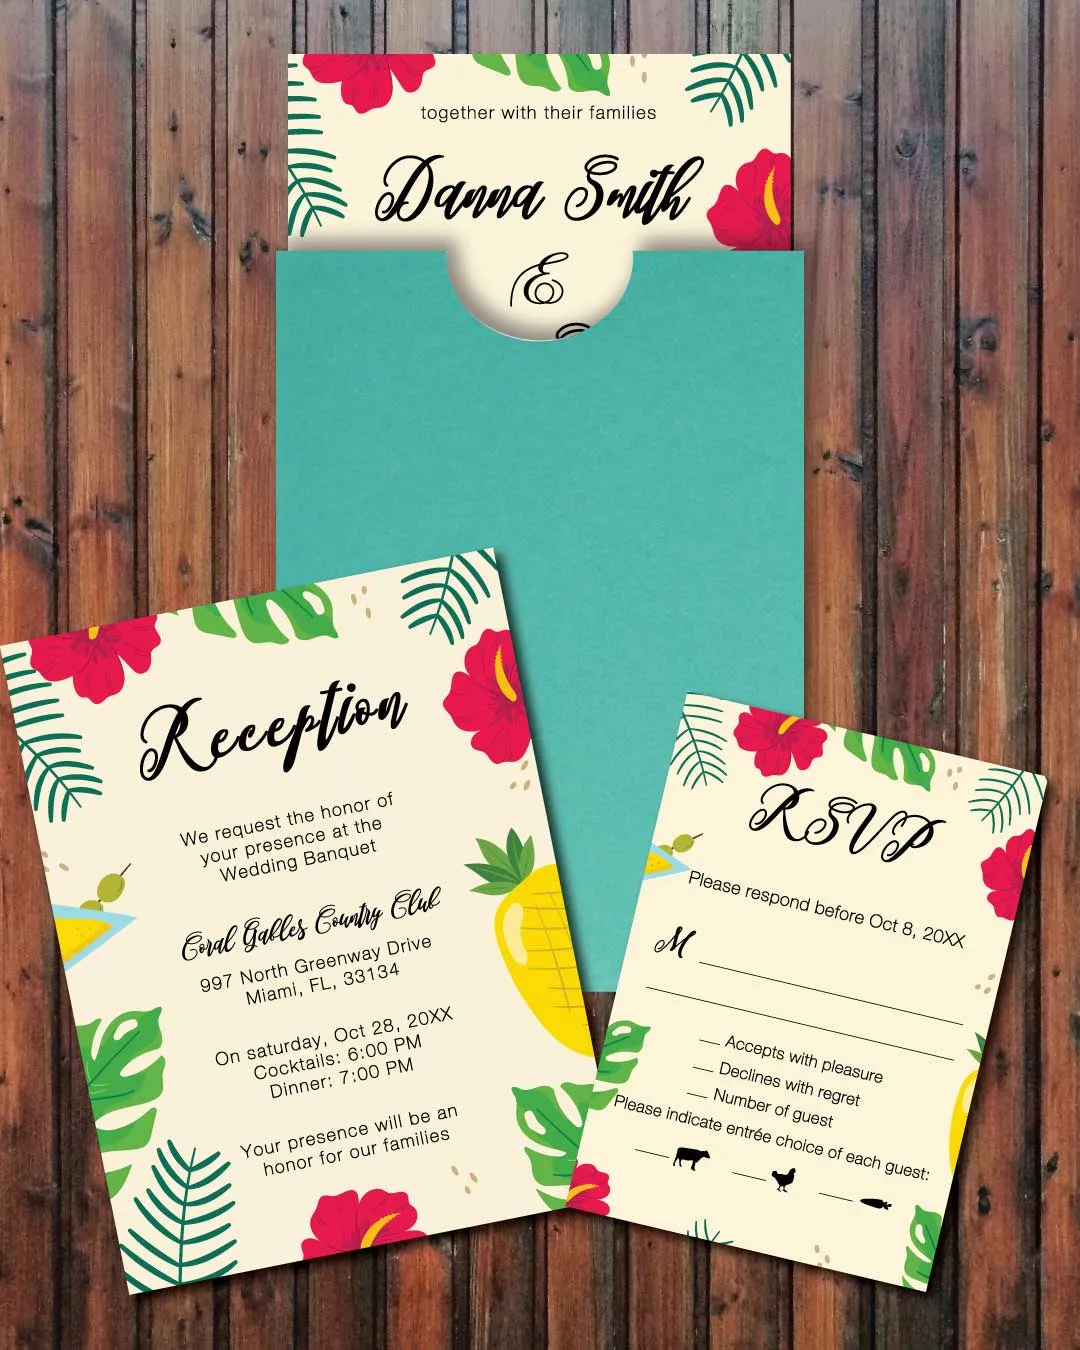 together with their families
Danna Smith
&
Reception
We request the honor of
your presence at the
Wedding Banquet
Coral Gables Country Club
997 North Greenway Drive
Miami, FL, 33134
On saturday, Oct 28, 20XX
Cocktails: 6:00 PM
Dinner: 7:00 PM
Your presence will be an
honor for our families
RSVP
Please respond before Oct 8, 20XX
M
Accepts with pleasure
Declines with regret
Number of guest
Please indicate entrée choice of each guest: